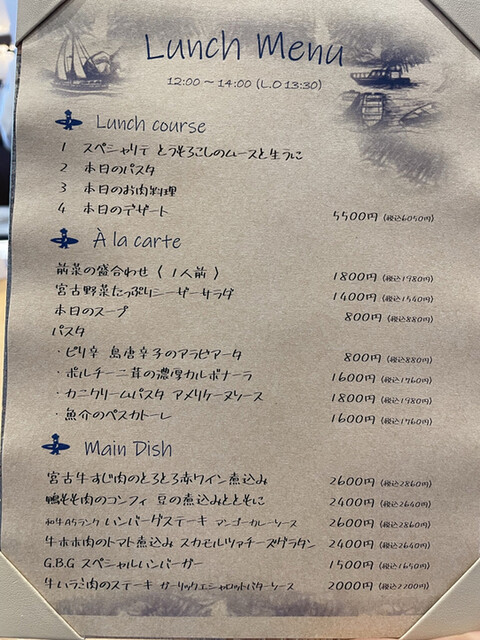 Lunch Menu
12:00 ～ 14:00 (L.O 13:30)
Lunch course
1 スペシャリテ とうもろこしのムースと生うに
2 本日のパスタ
3 本日のお肉料理
4 本日のデザート 5500円 (税込6050円)
À la carte
前菜の盛合わせ ( 1人前 ) 1800円 (税込1980円)
宮古野菜たっぷりシーザーサラダ 1400円 (税込1540円)
本日のスープ 800円 (税込880円)
パスタ
・ピリ辛 島唐辛子のアラビアータ 800円 (税込880円)
・ポルチーニ茸の濃厚カルボナーラ 1600円 (税込1760円)
・カニクリームパスタ アメリケーヌソース 1800円 (税込1980円)
・魚介のペスカトーレ 1600円 (税込1760円)
Main Dish
宮古牛すじ肉のとろとろ赤ワイン煮込み 2600円 (税込2860円)
鴨もも肉のコンフィ 豆の煮込みとともに 2400円 (税込2640円)
和牛A5ランク ハンバーグステーキ マンゴーカレーソース 2600円 (税込2860円)
牛ホホ肉のトマト煮込み スカモルツァチーズグラタン 2400円 (税込2640円)
G.B.G スペシャルハンバーガー 1500円 (税込1650円)
牛ハラミ肉のステーキ ガーリックエシャロットバターソース 2000円 (税込2200円)